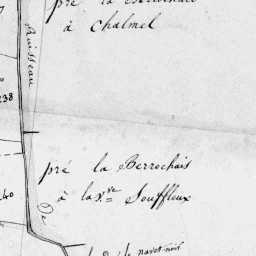 pré la
à chalmel
Ruisseau
238
pré la Berrochais
à la v.ve Souffleux
40
De